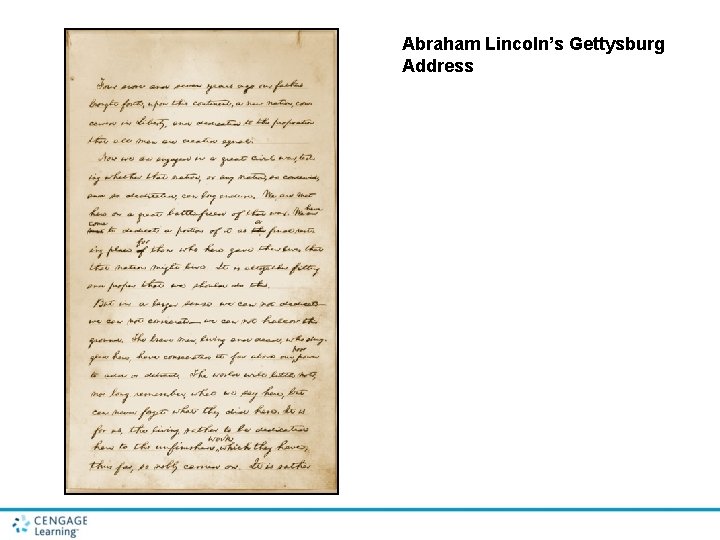 Abraham Lincoln's Gettysburg
Address
Four score and seven years ago our fathers
brought forth, upon this continent, a new nation, con-
ceived in Liberty, and dedicated to the proposition
that all men are created equal.
Now we are engaged in a great civil war, test-
ing whether that nation, or any nation, so conceived,
and so dedicated, can long endure. We are met
here on a great battlefield of that war. We have
come
to dedicate a portion of it as a final rest-
ing place for those who here gave their lives that
that nation might live. It is altogether fitting
and proper that we should do this.
But in a larger sense we can not dedicate—
we can not consecrate— we can not hallow this
ground. The brave men, living and dead, who strug-
gled here, have consecrated it far above our poor power
to add or detract. The world will little note,
nor long remember, what we say here, but
can never forget what they did here. It is
for us, the living, rather to be dedicated
here to the unfinished work which they have,
thus far, so nobly carried on. It is rather
CENGAGE
Learning™